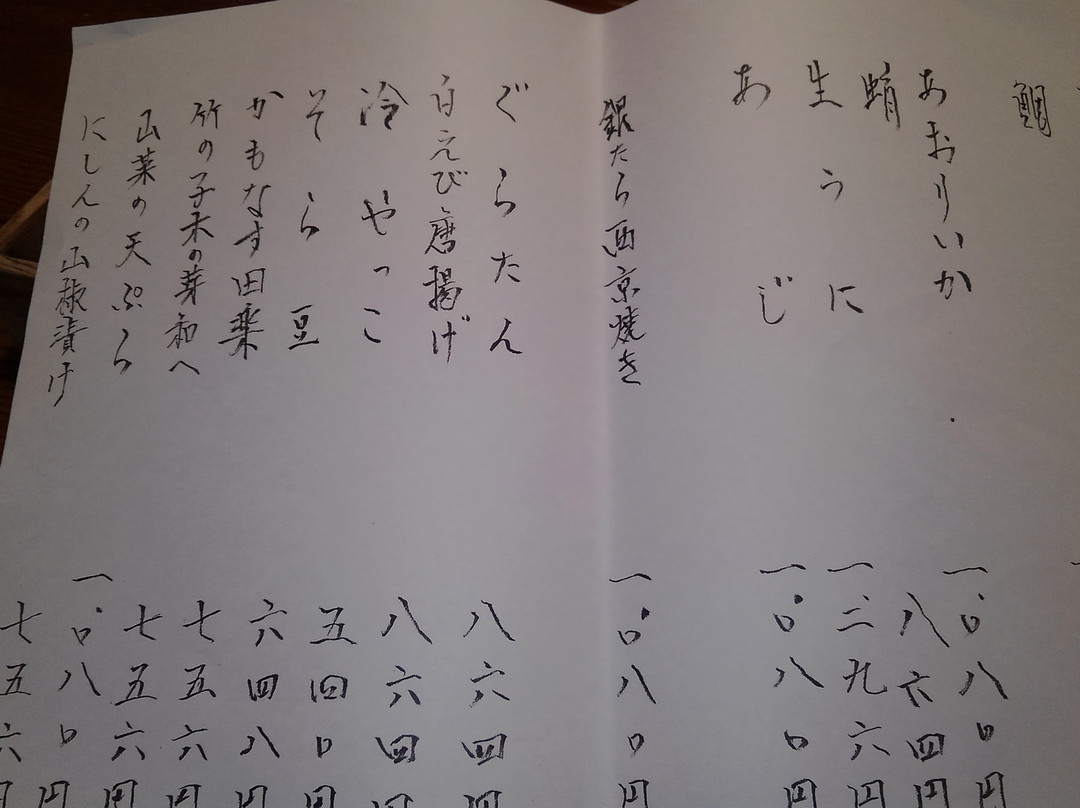 鯛
あおりいか 一、〇八〇円
蛸 八六四円
生うに 一、二九六円
あじ 一、〇八〇円
銀たら西京焼き 一、〇八〇円
ぐらたん 八六四円
白えび唐揚げ 八六四円
冷やっこ 五四〇円
そら豆 六四八円
かもなす田楽 七五六円
竹の子木の芽和へ 七五六円
山菜の天ぷら 一、〇八〇円
にしんの山椒漬け 七五六円